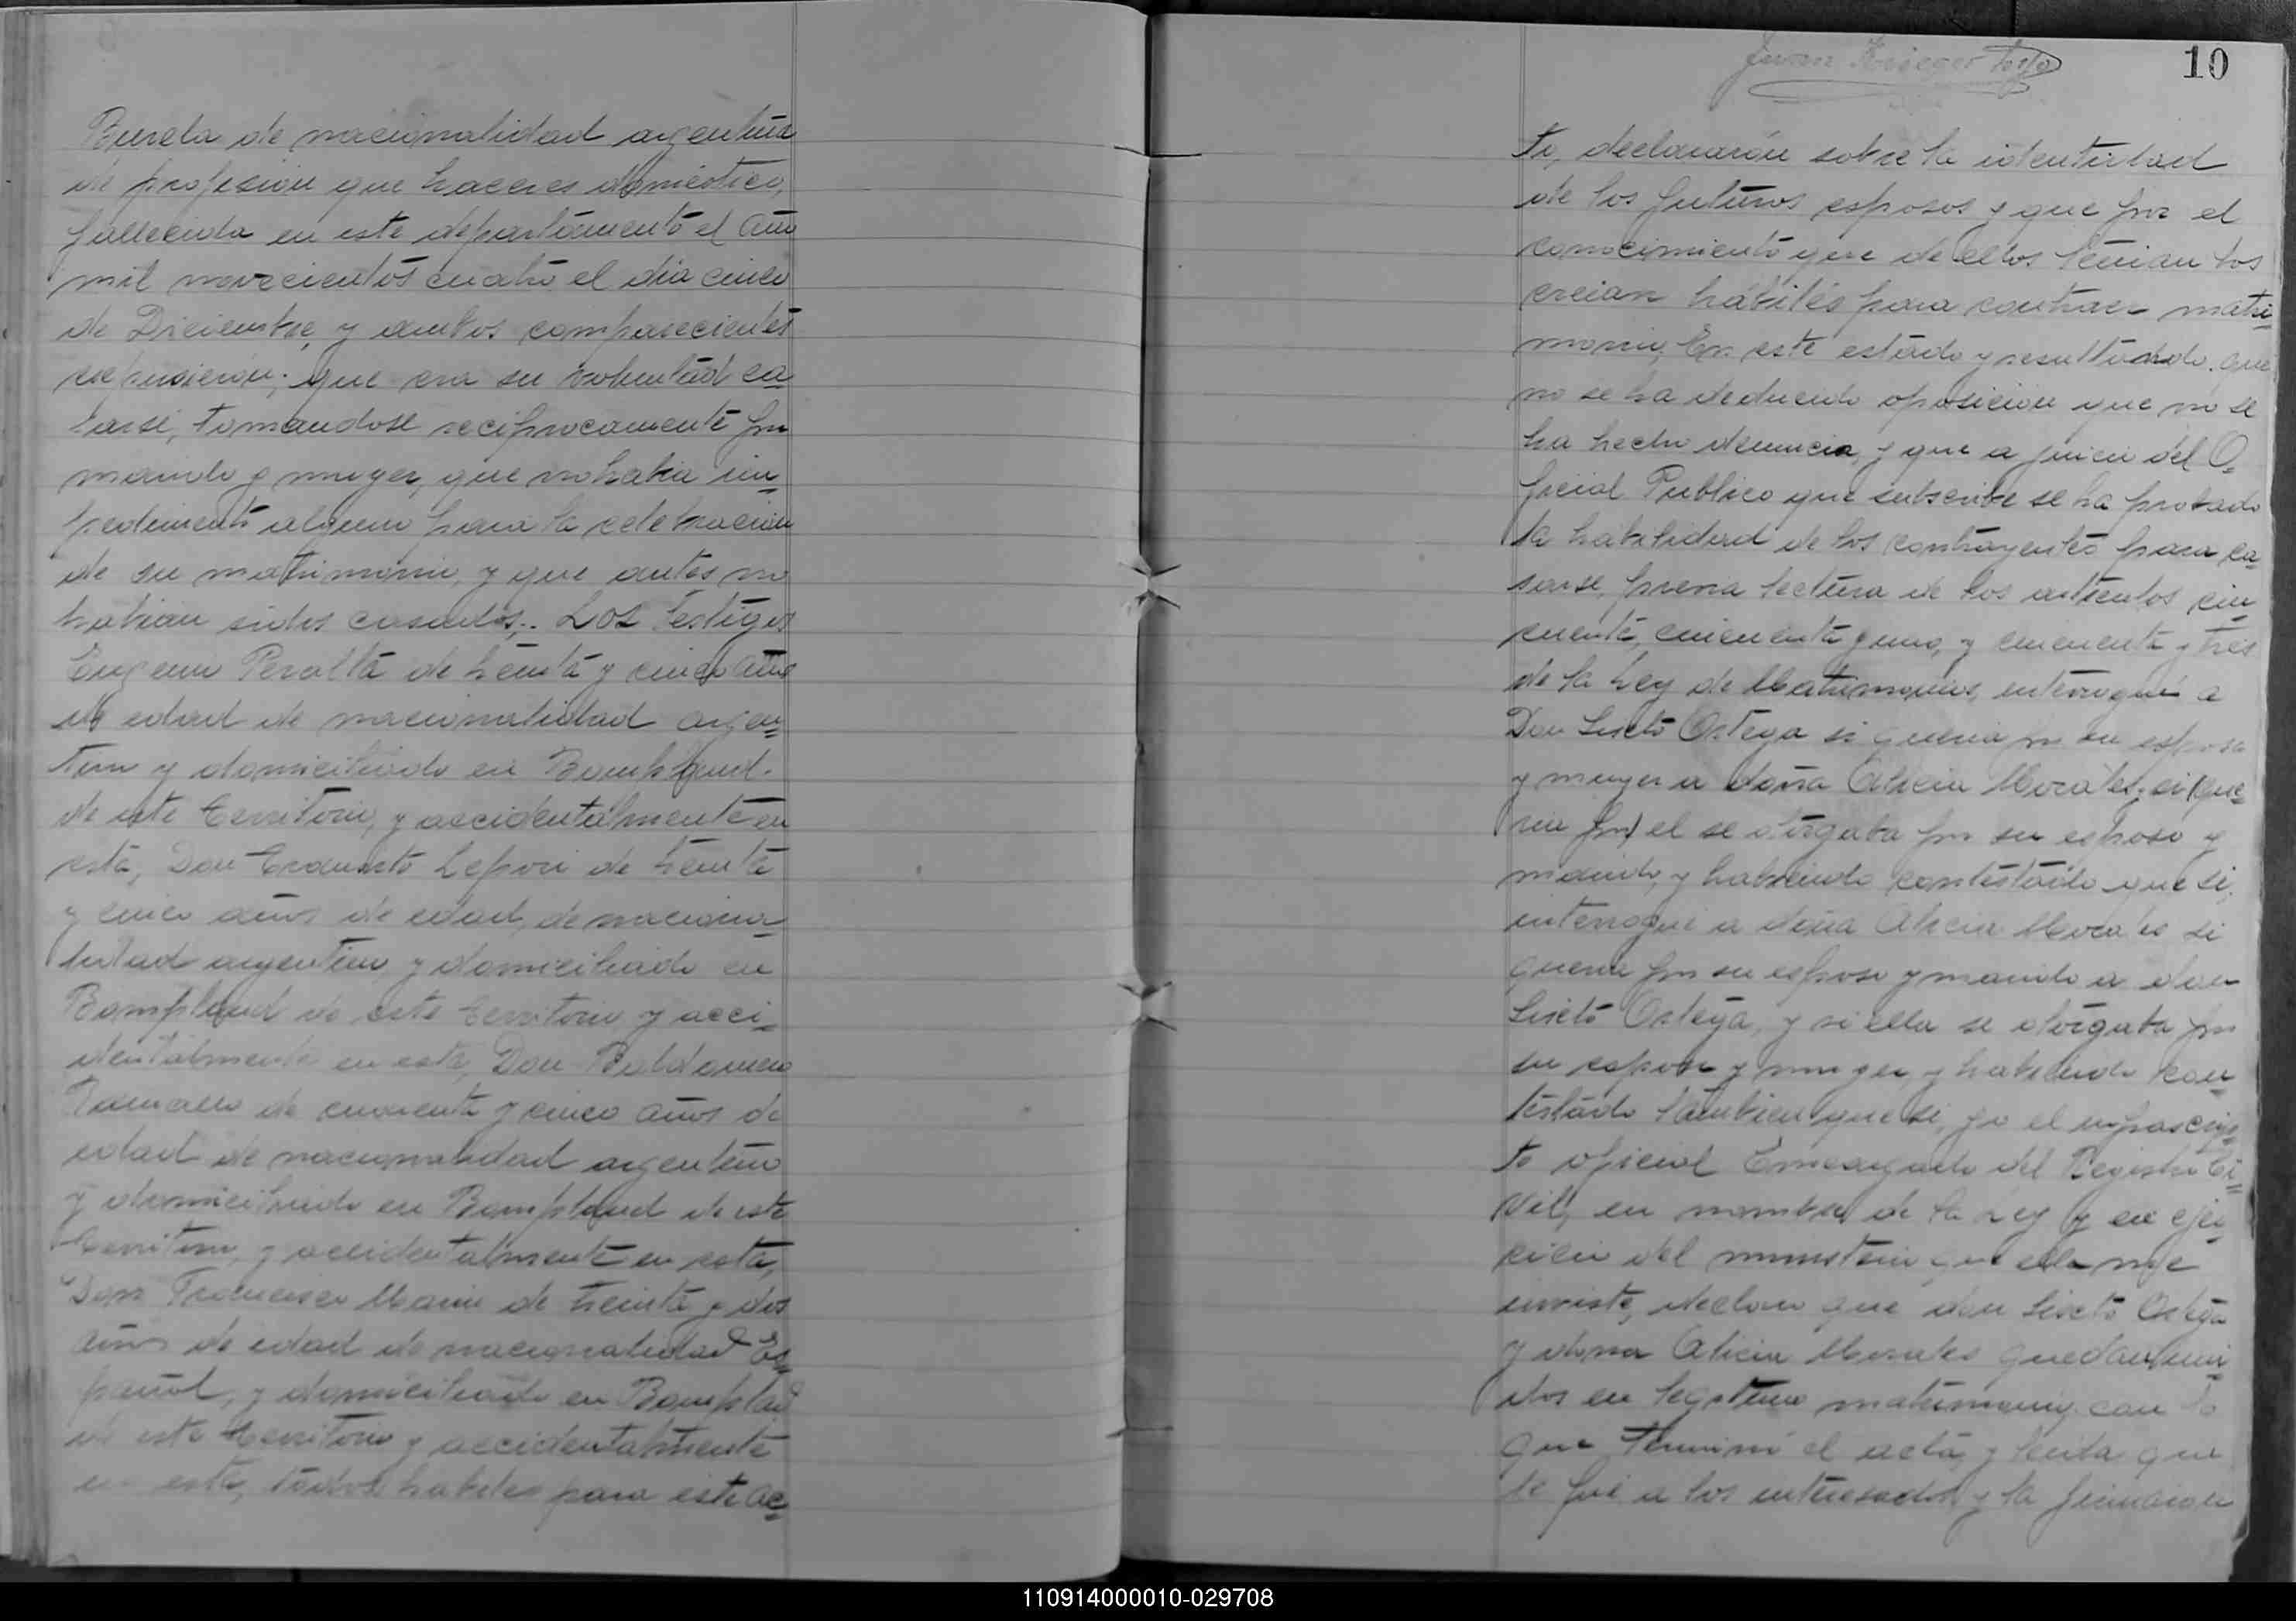 Bureta de nacionalidad argentina
de profesion que haceres domestico,
fallecida en este departamento el año
mil novecientos cuatro el dia cinco
de Diciembre, y ambos comparecientes
expusieron; que era su voluntad ca=
sarse, tomandose reciprocamente por
marido y muger, que no habia im=
pedimento alguno para la celebracion
de su matrimonio, y que antes no
habian sidos casados;. Los testigos
Eugenio Peralta de treinta y cinco años
de edad de nacionalidad argen=
tino y domiciliado en Bompland.
de este territorio, y accidentalmente en
esta, Don Lepori de treinta
y cinco años de edad, de naciona=
lidad argentino y domiciliado en
Bompland de este territorio y acci=
dentalmente en esta, Don Baldomero
de cuarenta y cinco años de
edad de nacionalidad argentino
y domiciliado en Bompland de este
territorio, y accidentalmente en esta,
Don Francisco Marin de treinta y dos
años de edad de nacionalidad Es=
pañol, y domiciliado en Bompland
de este territorio y accidentalmente
en esta, todos habiles para este ac=
Juan Krieger
10
to, declararon sobre la identidad
de los futuros esposos y que por el
conocimiento que de ellos tenian los
creian hábiles para contraer matri=
monio, En este estado y resultando que
no se ha deducido oposicion que no se
ha hecho denuncia, y que a juicio del O=
ficial Publico que subscribe se ha probado
la habilidad de los contrayentes para ca=
sarse, previa lectura de los articulos cin=
cuenta, cincuenta y uno, y cincuenta y tres
de la Ley de Matrimonios, interrogué a
Don Liseto Ortega si queria por su esposa
y muger a doña Alicia Morales, si que=
ria por el se otorgaba por su esposo y
marido, y habiendo contestado que si,
interrogué a doña Alicia Morales si
queria por su esposo y marido a don
Liseto Ortega, y si ella se otorgaba por
su esposa y muger y habiendo con=
testado tambien que si, yo el infrascrip=
to oficial Encargado del Registro Ci=
vil, en nombre de la Ley y en ejer=
cicio del ministerio que ella me
inviste, declaro que don Liseto Ortega
y doña Alicia Morales quedan uni=
dos en legitimo matrimonio, con lo
que terminó el acta, y leida que
le fué a los interesados, y la firmaron